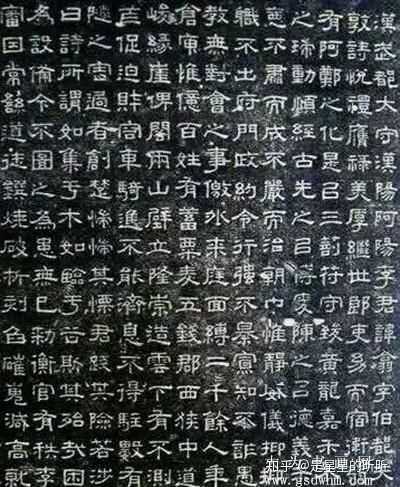 漢武都大守漢陽阿陽李君諱翕字伯都天
敦詩悅禮膺祿美厚繼世郎吏幼而宿衛
有阿鄭之化是以三剖符守致黃龍嘉禾
之瑞動順經古先之以博愛陳之以德義
惡不肅而成不嚴而治朝中惟靜威儀抑
職不出府門政約令行強不暴寡知不詐愚
教無對會之事徼外來庭面縛二千餘人年
倉庾惟億百姓有蓄粟麥五錢郡西狹中道
峻緣崖俾閣兩山壁立隆崇造雲下有不測
笮促迫財容車騎進不能濟息不得駐數有
隧之害過者創楚惴惴其慄君踐其險若涉
曰詩所謂如集于木如臨于谷斯其殆哉困
為設備今不圖之為患無已敕衡官有秩李
審因常繇道徒鐉燒破析刻臽確嵬減高就
知乎 @是星星的昕昕
www.gsdwhm.com